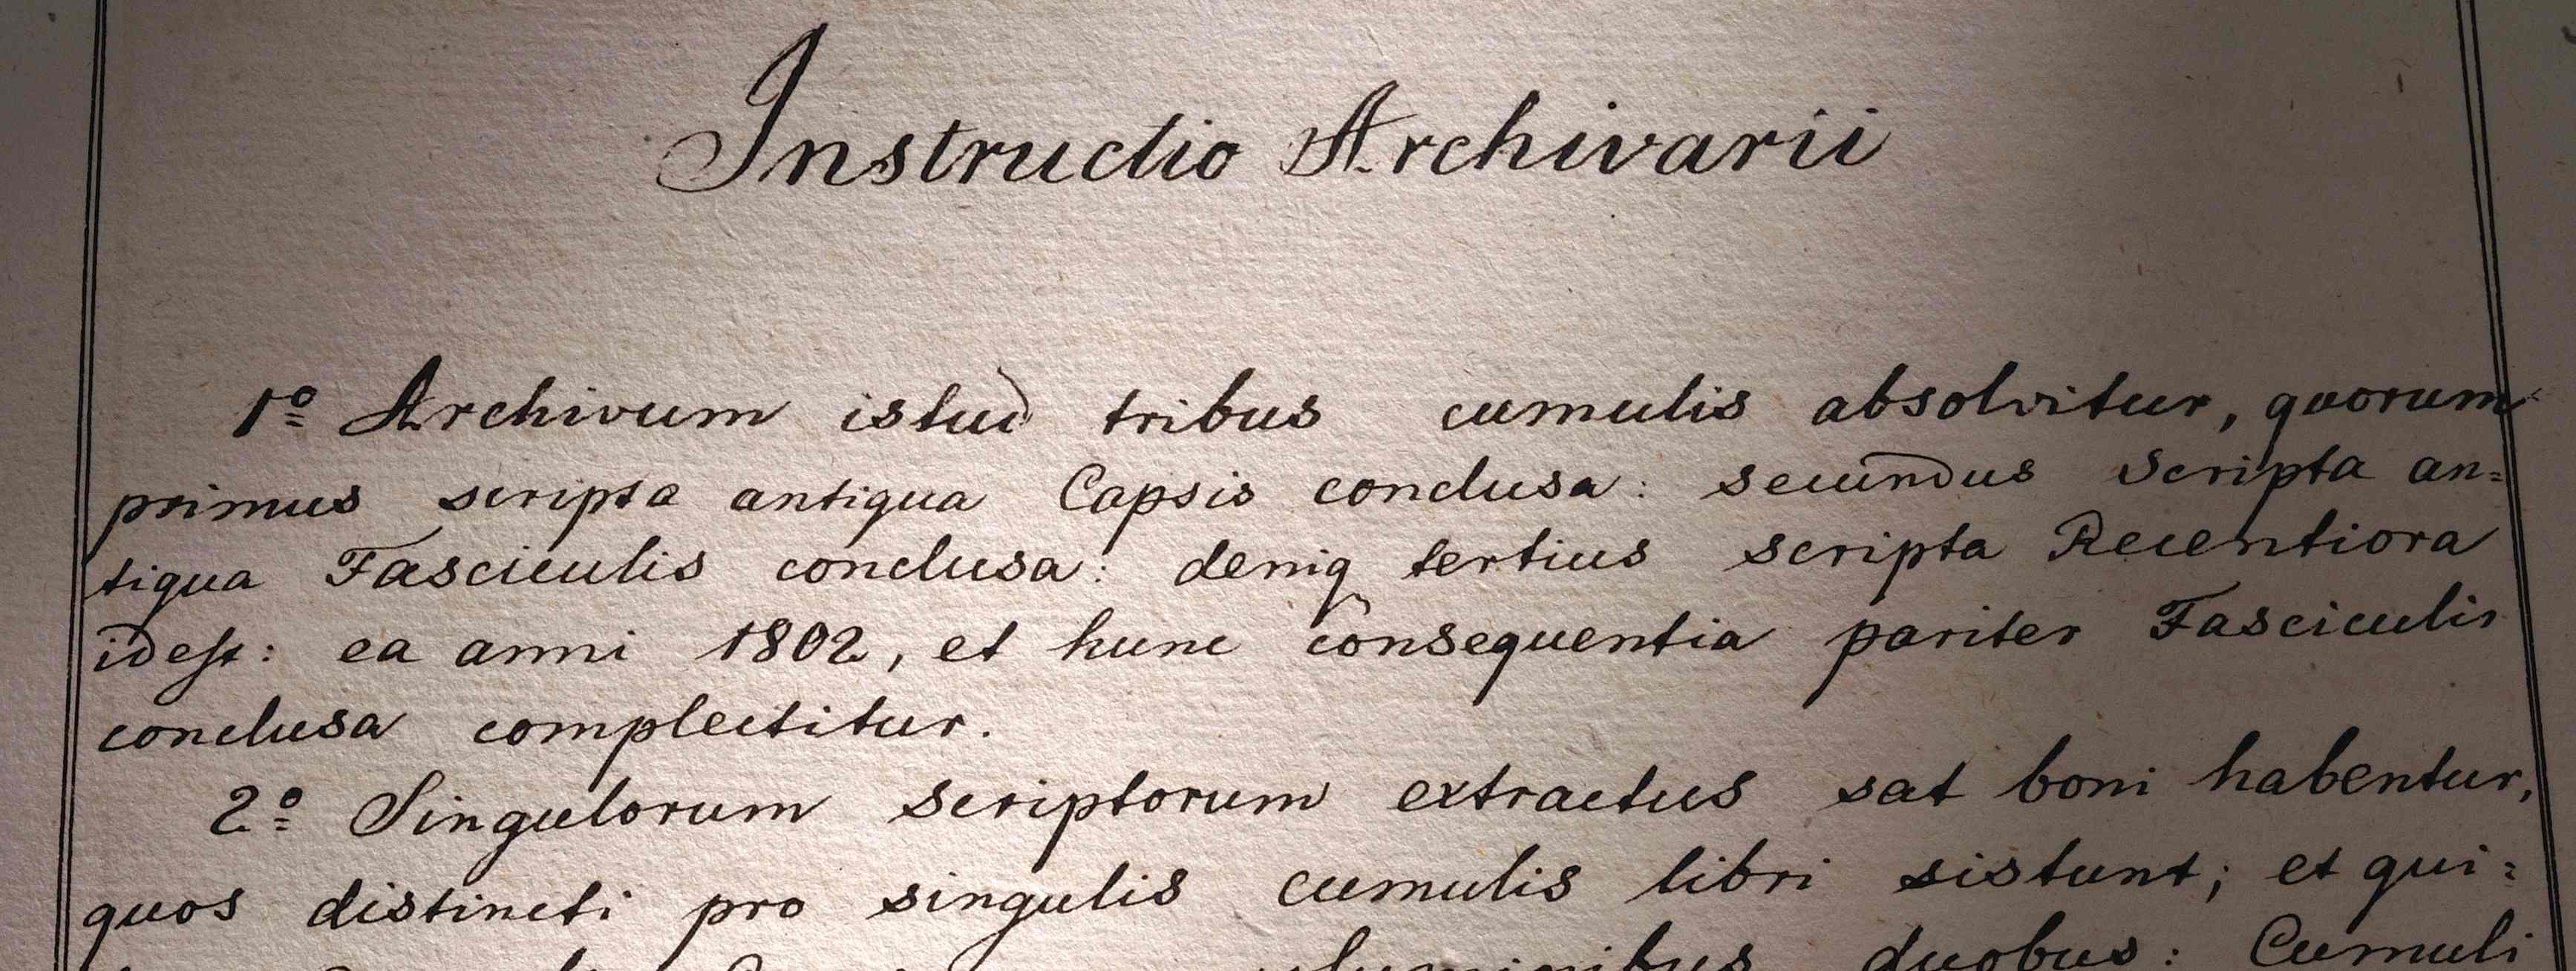 Instructio Archivarii
1º Archivum istud tribus cumulis absolvitur, quorum
primus scripta antiqua Capsis conclusa: secundus Scripta an=
tiqua Fasciculis conclusa: deniq tertius scripta Recentiora
idest: ea anni 1802, et hunc consequentia pariter Fasciculis
conclusa complectitur.
2º Singulorum scriptorum extractus sat boni habentur,
quos distincti pro singulis cumulis libri sistunt; et qui=
voluminibus duobus: Cumuli